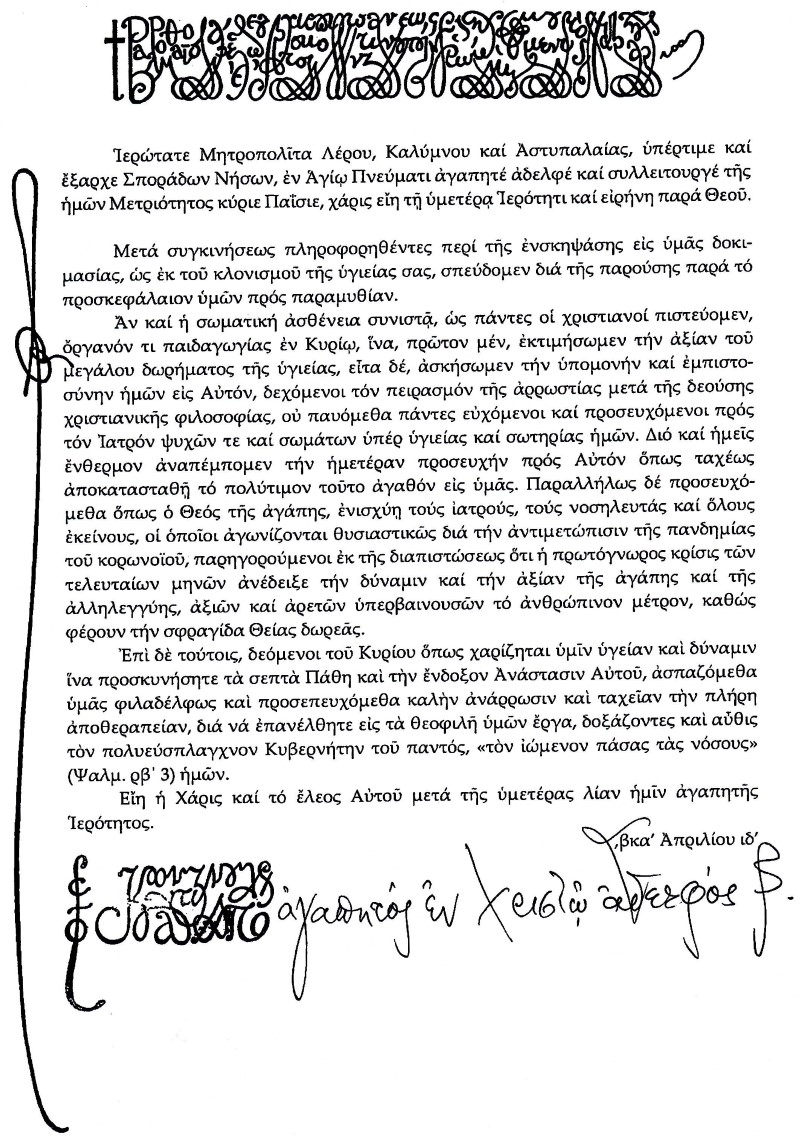 Ἱερώτατε Μητροπολῖτα Λέρου, Καλύμνου καί Ἀστυπαλαίας, ὑπέρτιμε καί
ἔξαρχε Σποράδων Νήσων, ἐν Ἁγίῳ Πνεύματι ἀγαπητέ ἀδελφέ καί συλλειτουργέ τῆς
ἡμῶν Μετριότητος κύριε Παΐσιε, χάρις εἴη τῇ ὑμετέρᾳ Ἱερότητι καί εἰρήνη παρά Θεοῦ.
Μετά συγκινήσεως πληροφορηθέντες περί τῆς ἐνσκηψάσης εἰς ὑμᾶς δοκι-
μασίας, ὡς ἐκ τοῦ κλονισμοῦ τῆς ὑγιείας σας, σπεύδομεν διά τῆς παρούσης παρά τό
προσκεφάλαιον ὑμῶν πρός παραμυθίαν.
Ἄν καί ἡ σωματική ἀσθένεια συνιστᾷ, ὡς πάντες οἱ χριστιανοί πιστεύομεν,
ὄργανόν τι παιδαγωγίας ἐν Κυρίῳ, ἵνα, πρῶτον μέν, ἐκτιμήσωμεν τήν ἀξίαν τοῦ
μεγάλου δωρήματος τῆς ὑγιείας, εἶτα δέ, ἀσκήσωμεν τήν ὑπομονήν καί ἐμπιστο-
σύνην ἡμῶν εἰς Αὐτόν, δεχόμενοι τόν πειρασμόν τῆς ἀρρωστίας μετά τῆς δεούσης
χριστιανικῆς φιλοσοφίας, οὐ παυόμεθα πάντες εὐχόμενοι καί προσευχόμενοι πρός
τόν Ἰατρόν ψυχῶν τε καί σωμάτων ὑπέρ ὑγιείας καί σωτηρίας ἡμῶν. Διό καί ἡμεῖς
ἔνθερμον ἀναπέμπομεν τήν ἡμετέραν προσευχήν πρός Αὐτόν ὅπως ταχέως
ἀποκατασταθῇ τό πολύτιμον τοῦτο ἀγαθόν εἰς ὑμᾶς. Παραλλήλως δέ προσευχό-
μεθα ὅπως ὁ Θεός τῆς ἀγάπης, ἐνισχύῃ τούς ἰατρούς, τούς νοσηλευτάς καί ὅλους
ἐκείνους, οἱ ὁποῖοι ἀγωνίζονται θυσιαστικῶς διά τήν ἀντιμετώπισιν τῆς πανδημίας
τοῦ κορωνοϊοῦ, παρηγορούμενοι ἐκ τῆς διαπιστώσεως ὅτι ἡ πρωτόγνωρος κρίσις τῶν
τελευταίων μηνῶν ἀνέδειξε τήν δύναμιν καί τήν ἀξίαν τῆς ἀγάπης καί τῆς
ἀλληλεγγύης, ἀξιῶν καί ἀρετῶν ὑπερβαινουσῶν τό ἀνθρώπινον μέτρον, καθώς
φέρουν τήν σφραγῖδα Θείας δωρεᾶς.
Ἐπὶ δὲ τούτοις, δεόμενοι τοῦ Κυρίου ὅπως χαρίζηται ὑμῖν ὑγείαν καὶ δύναμιν
ἵνα προσκυνήσητε τὰ σεπτά Πάθη καὶ τὴν ἔνδοξον Ἀνάστασιν Αὐτοῦ, ἀσπαζόμεθα
ὑμᾶς φιλαδέλφως καὶ προσεπευχόμεθα καλὴν ἀνάρρωσιν καὶ ταχεῖαν τὴν πλήρη
ἀποθεραπείαν, διά νά ἐπανέλθητε εἰς τὰ θεοφιλῆ ὑμῶν ἔργα, δοξάζοντες καὶ αὖθις
τὸν πολυεύσπλαγχνον Κυβερνήτην τοῦ παντός, «τὸν ἰώμενον πάσας τὰς νόσους»
(Ψαλμ. ρβ΄ 3) ἡμῶν.
Εἴη ἡ Χάρις καί τό ἔλεος Αὐτοῦ μετά τῆς ὑμετέρας λίαν ἡμῖν ἀγαπητῆς
Ἱερότητος.
͵βκα΄ Ἀπριλίου ιδ΄
ἀγαπητός ἐν Χριστῷ ἀδελφός